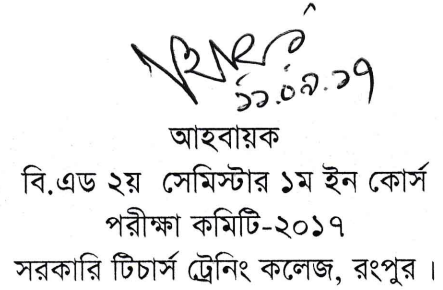 ১১.০৯.১৭
আহবায়ক
বি.এড ২য় সেমিস্টার ১ম ইন কোর্স
পরীক্ষা কমিটি-২০১৭
সরকারি টিচার্স ট্রেনিং কলেজ, রংপুর ।